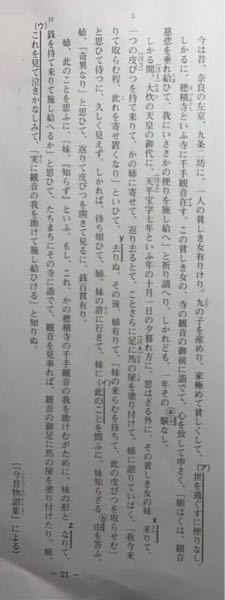 今は昔、奈良の左京、九条二坊に、一人の貧しき女有りけり。九の子を産めり。家極めて貧しくして、世を過ぐすに便りなし。
しかるに、穂積寺といふ寺に千手観音在す。この貧しき女の、寺の観音の御前に詣でて、心を致して申さく、「願はくは、観音
慈悲を垂れ給ひて、我にいささかの便りを施し給へ」と祈り請へり。しかれども、一年その験なし。
しかる間、大炊の天皇の御代に、天平宝字七年といふ年の十月一日の夕暮れ方に、思はざる外に、その貧しき女の妹来りて、
一つの皮びつを持て来りて、かの姉に寄せて、返り去るとて、ことさらに足に馬の屎を塗り付けて、姉に語りていはく、「我今来
りて取らむ程、此れを寄せ置くなり」といひて、去りぬ。その後、姉有りて、「妹の来らむを待ちて、此の皮びつを取らせむ」
と思ひて待つに、久しく見えず。しかれば、待ち煩ひて、姉、妹の許に行きて、妹に此のことを問ふに、妹知らざる由を答ふ。
姉、「奇異なり」と思ひて、返りて皮びつを開きて見るに、銭百貫有り。
姉、此のことを思ふに、「妹『知らず』といふ。もし、これ、かの穂積寺の千手観音の我を助けむがために、妹の形となりて、
銭を持て来りて施し給へるか」と思ひて、たちまちにその寺に詣でて、観音を見奉れば、観音の御足に馬の屎を塗り付けたり。姉、
これを見て泣きかなしみて、「実に観音の我を助けて施し給ひける」と知りぬ。
(『今昔物語集』による)
— 21 —